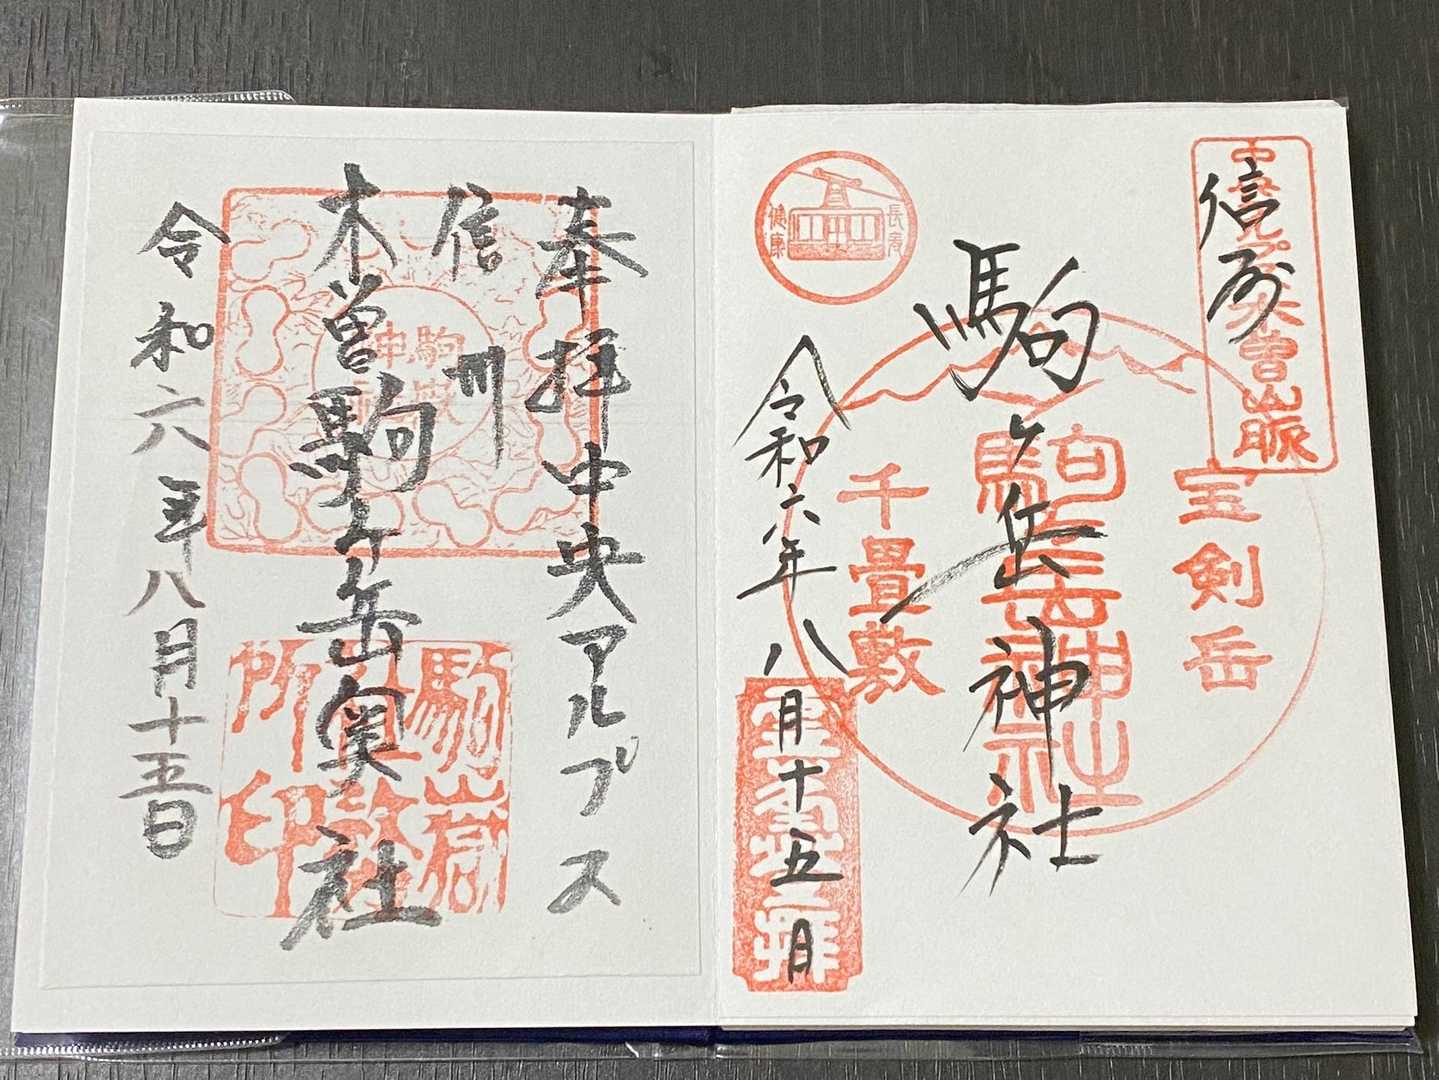 信州
中央アルプス木曽山脈
駒ヶ岳神社
駒岳神社
宝剣岳
千畳敷
長寿
健康
令和六年八月十五日
登拝
奉拝中央アルプス
信州
木曽駒ヶ岳奥社
令和六年八月十五日
駒嶽
所印